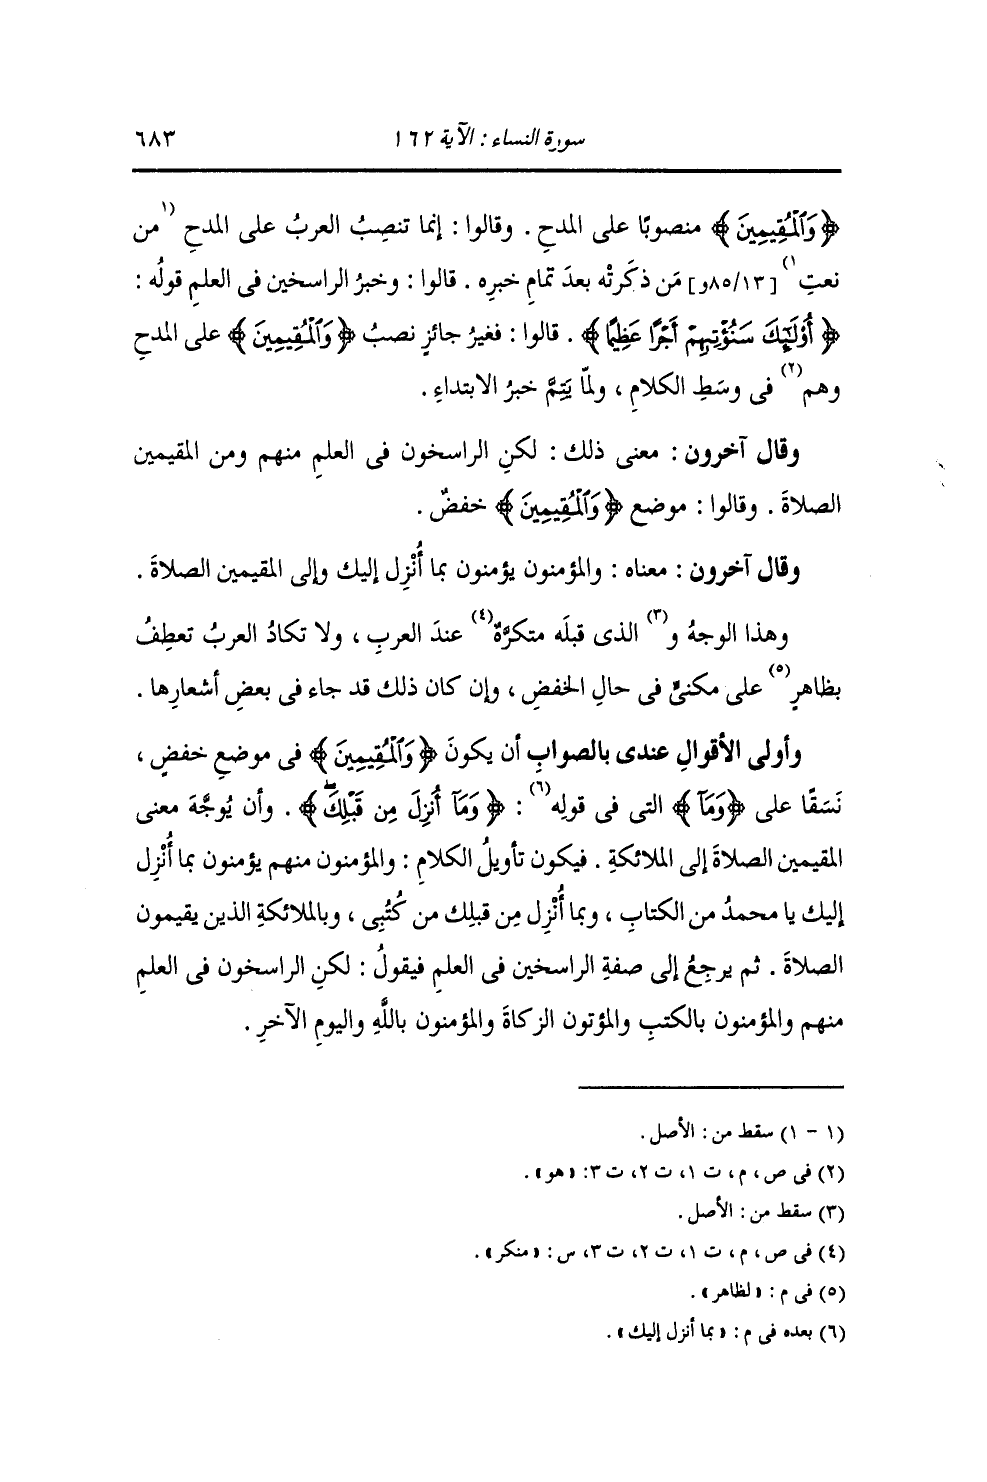 سورة النساء : الآية ١٦٢
٦٨٣
﴿ وَٱلْمُقِيمِينَ ﴾ منصوبًا على المدحِ . وقالوا : إنما تنصِبُ العربُ على المدحِ (١من
نعتِ ١) [١٣/ ٨٥و] مَن ذكَرتْه بعدَ تمامِ خبرِه . قالوا : وخبرُ الراسخين فى العلمِ قولُه :
﴿ أُوْلَٰٓئِكَ سَنُؤْتِيهِمْ أَجْرًا عَظِيمًا ﴾ . قالوا : فغيرُ جائزٍ نصبُ ﴿ وَٱلْمُقِيمِينَ ﴾ على المدحِ
وهم(٢) فى وسَطِ الكلامِ ، ولمّا يَتِمَّ خبرُ الابتداءِ .
وقال آخرون : معنى ذلك : لكنِ الراسخون فى العلمِ منهم ومن المقيمين
الصلاةَ . وقالوا : موضع ﴿ وَٱلْمُقِيمِينَ ﴾ خفضٌ .
وقال آخرون : معناه : والمؤمنون يؤمنون بما أُنْزِل إليك وإلى المقيمين الصلاةَ .
وهذا الوجهُ و(٣) الذى قبلَه متكرَّةٌ(٤) عندَ العربِ ، ولا تكادُ العربُ تعطِفُ
بظاهرٍ(٥) على مكنىٍّ فى حالِ الخفضِ ، وإن كان ذلك قد جاء فى بعضِ أشعارِها .
وأولى الأقوالِ عندى بالصوابِ أن يكونَ ﴿ وَٱلْمُقِيمِينَ ﴾ فى موضعِ خفضٍ ،
نَسَقًا على ﴿وَمَآ ﴾ التى فى قولِه(٦) : ﴿ وَمَآ أُنزِلَ مِن قَبْلِكَۚ ﴾ . وأن يُوجَّهَ معنى
المقيمين الصلاةَ إلى الملائكةِ . فيكون تأويلُ الكلامِ : والمؤمنون منهم يؤمنون بما أُنْزِل
إليك يا محمدُ من الكتابِ ، وبما أُنْزِل مِن قبلِك من كُتُبِى ، وبالملائكةِ الذين يقيمون
الصلاةَ . ثم يرجِعُ إلى صفةِ الراسخين فى العلمِ فيقولُ : لكنِ الراسخون فى العلمِ
منهم والمؤمنون بالكتبِ والمؤتون الزكاةَ والمؤمنون باللَّهِ واليومِ الآخرِ .
(١ - ١) سقط من : الأصل .
(٢) فى ص ، م ، ت ١، ت ٢، ت ٣: «هو» .
(٣) سقط من : الأصل .
(٤) فى ص ، م ، ت ١، ت ٢، ت ٣، س : «منكر» .
(٥) فى م : «لظاهر» .
(٦) بعده فى م : «بما أنزل إليك» .